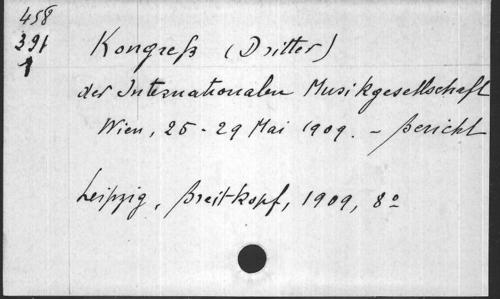 458
391
1
Kongreß (Dritter)
der Internationalen Musikgesellschaft
Wien, 25 - 29 Mai 1909. - Bericht
Leipzig, Breitkopf, 1909, 8º